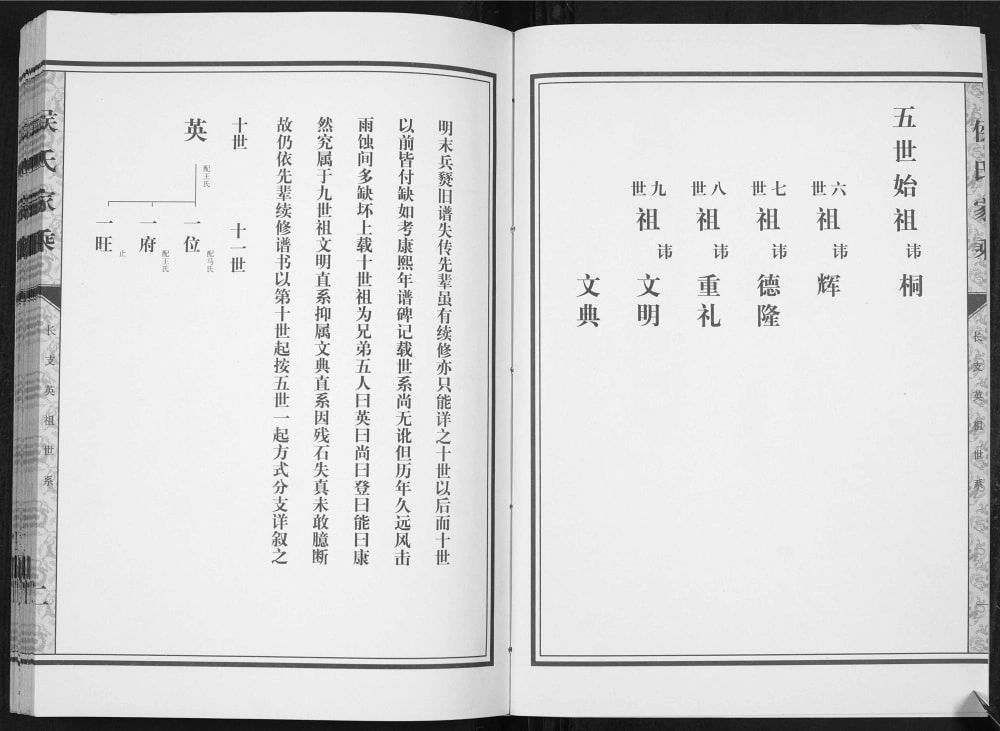 五世始祖讳桐
六世祖讳辉
七世祖讳德隆
八世祖讳重礼
九世祖讳文明
文典
侯氏家乘
长支英祖世系
一
明末兵燹旧谱失传先辈虽有续修亦只能详之十世以后而十世
以前皆付缺如考康熙年谱碑记载世系尚无讹但历年久远风击
雨蚀间多缺坏上载十世祖为兄弟五人曰英曰尚曰登曰能曰康
然究属于九世祖文明直系抑属文典直系因残石失真未敢臆断
故仍依先辈续修谱书以第十世起按五世一起方式分支详叙之
十世
十一世
英
配王氏
一位
配马氏
一府
配王氏
一旺
止
侯氏家乘
长支英祖世系
二